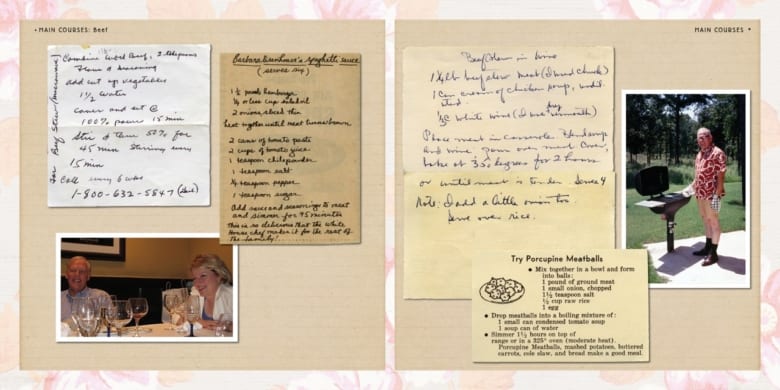 • MAIN COURSES: Beef
For Beef Stew (microwave)
Combine Cubed Beef, 3 tablespoons
Flour & seasoning
add cut up vegetables
1½ Water
Cover and cut @
100% power 15 min
Stir & turn 50% for
45 min Stirring every
15 min
Call every 6 wks
1-800-632-5847
Barbara Eisenhower's spaghetti sauce
(serves six)
1½ pounds hamburger
¼ or less cup salad oil
2 onions, sliced thin
heat together until meat turns brown
2 cans of tomato paste
2 cups of tomato juice
1 teaspoon chile powder
1 teaspoon salt
¼ teaspoon pepper
1 teaspoon sugar
Add sauce and seasonings to meat
and simmer for 45 minutes
This is so delicious that the White
House chef makes it for the rest of
the family!
MAIN COURSES •
Beef Stew in Wine
1½ lb beef stew meat (I used chuck)
1 can cream of chicken soup, undil-
uted.
½ C white wine (I use dry vermouth)
Place meat in casserole. Blend soup
and wine, pour over meat. Cover,
bake at 350 degrees for 2 hours
or until meat is tender. Serves 4
Note: I add a little onion too.
Serve over rice.
Try Porcupine Meatballs
• Mix together in a bowl and form
into balls:
1 pound of ground meat
1 small onion, chopped
1½ teaspoon salt
½ cup raw rice
1 egg
• Drop meatballs into a boiling mixture of:
1 small can condensed tomato soup
1 soup can of water
• Simmer 1½ hours on top of
range or in a 325° oven (moderate heat).
Porcupine Meatballs, mashed potatoes, buttered
carrots, cole slaw, and bread make a good meal.